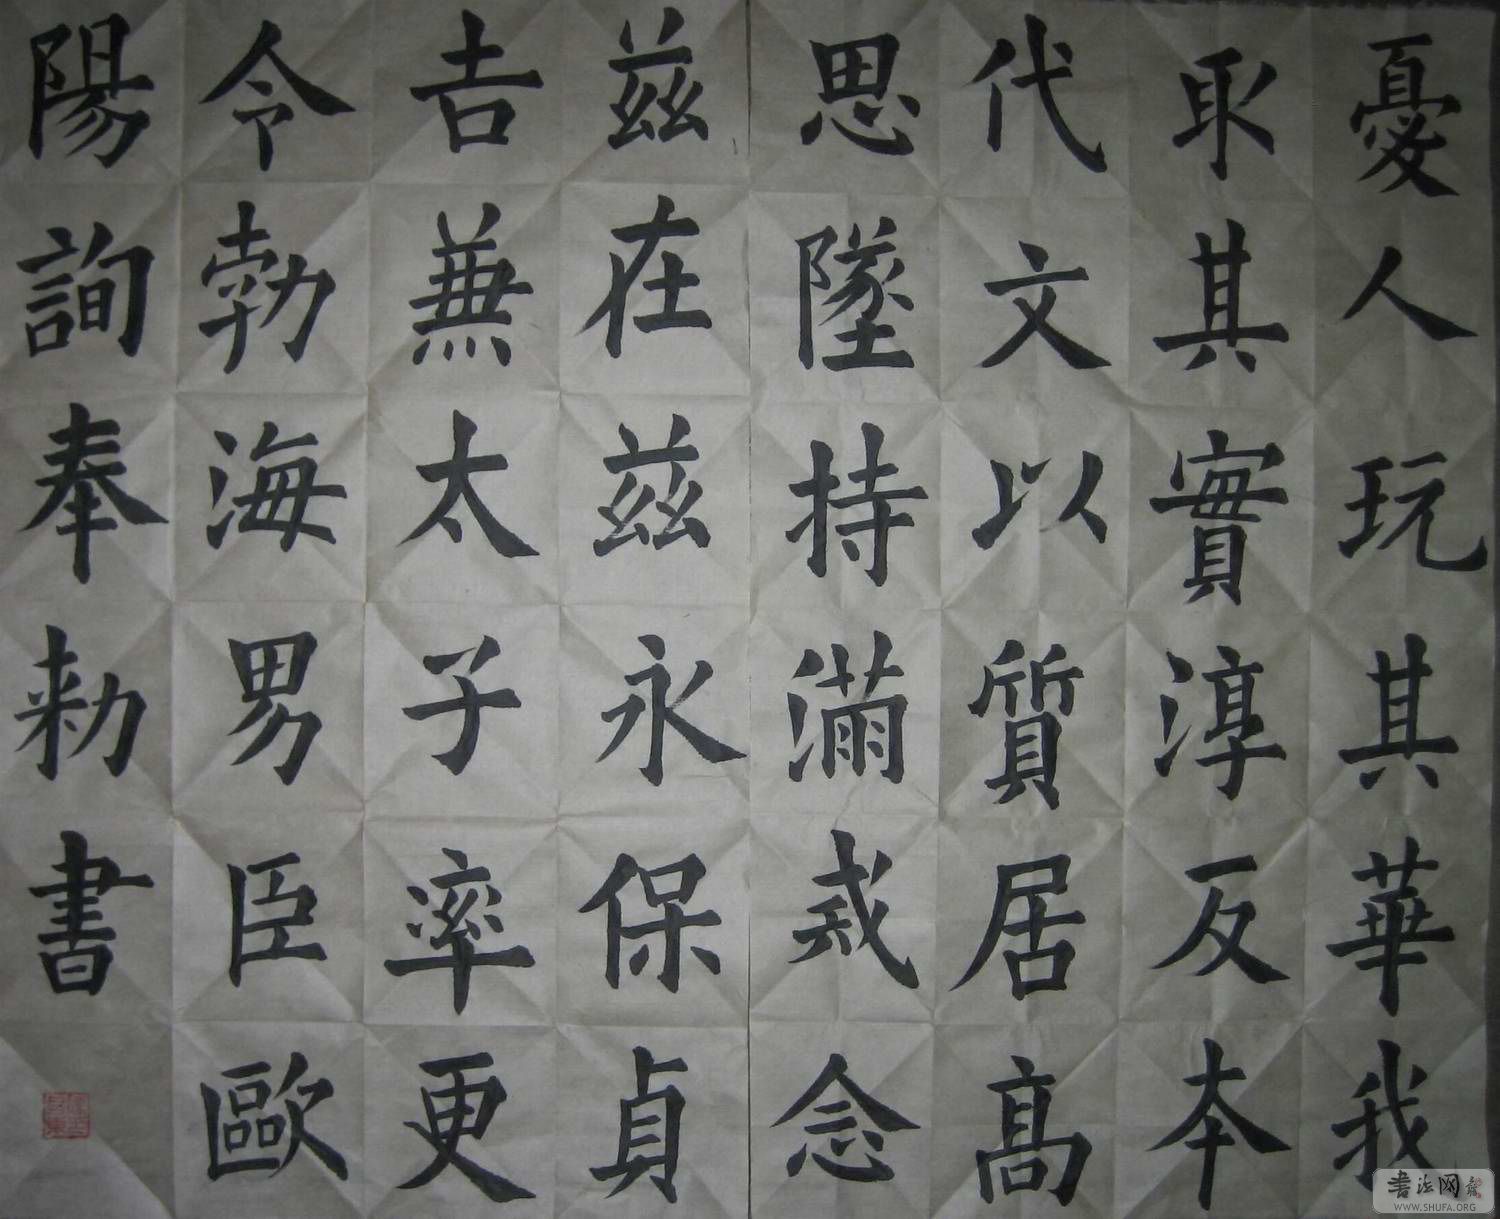 憂人玩其華我
取其實淳反本
代文以質居高
思墜持滿戒念
茲在茲永保貞
吉兼太子率更
令勃海男臣歐
陽詢奉勑書
书法网
WWW.SHUFA.ORG